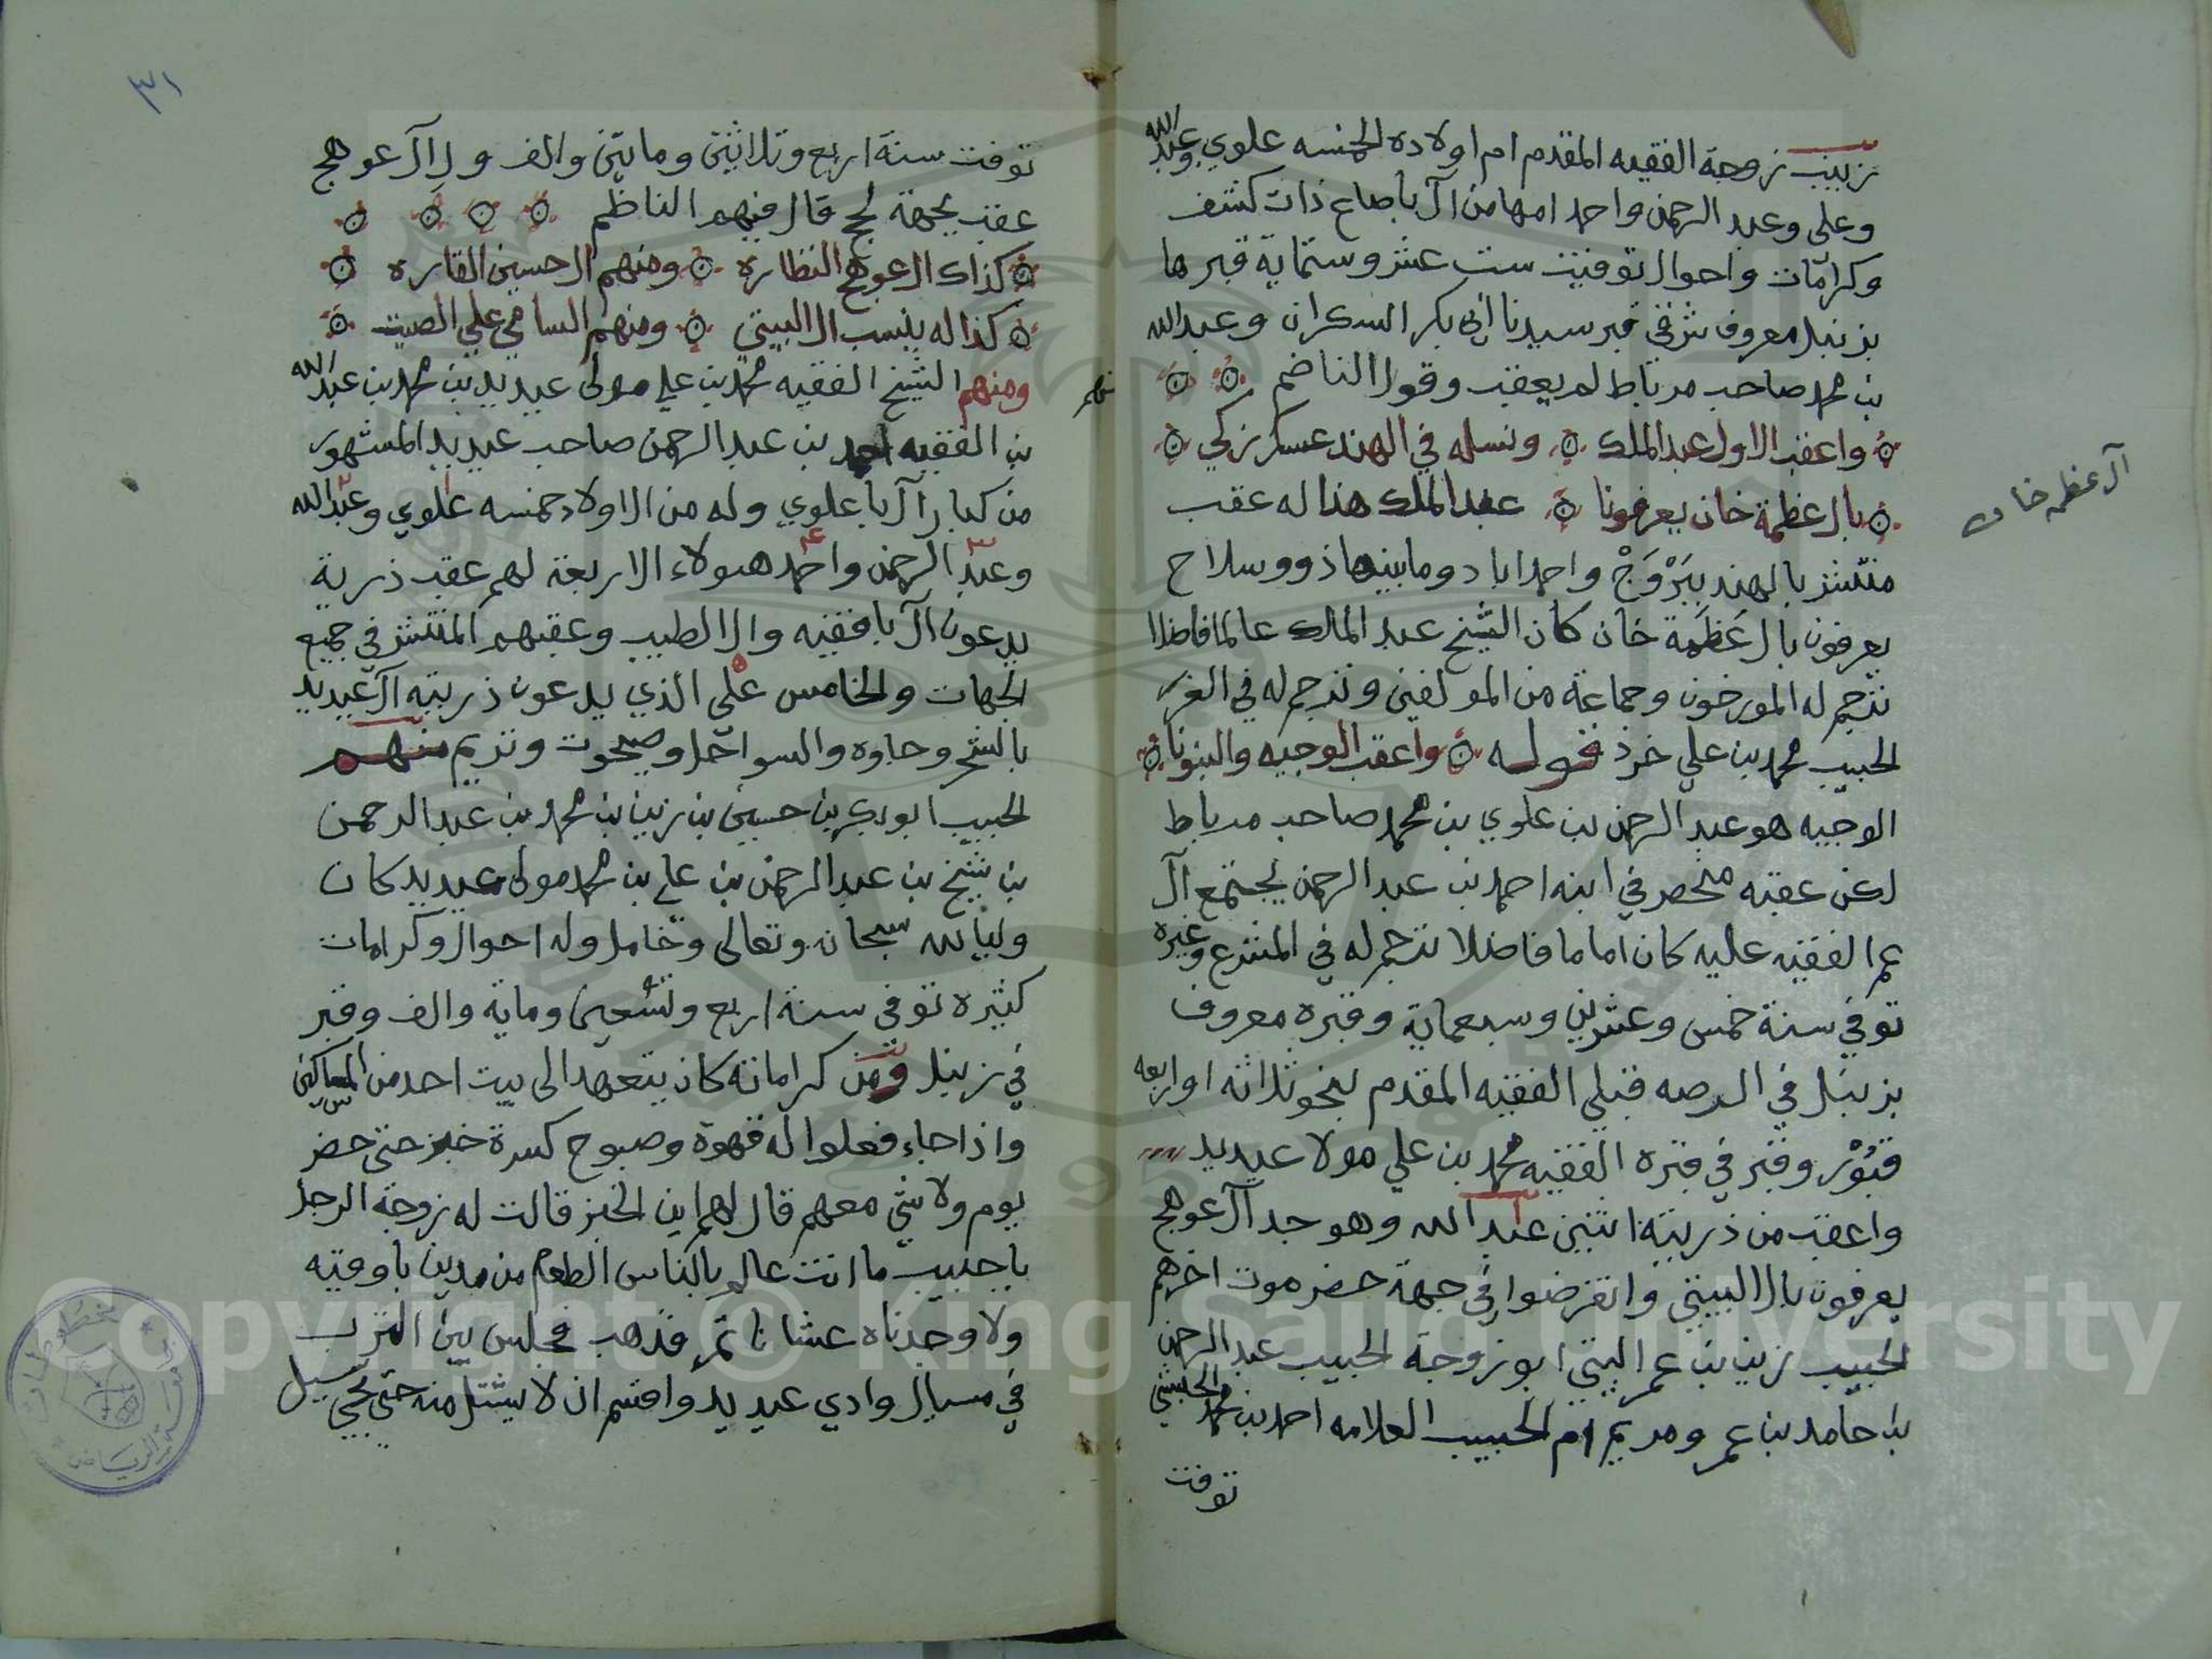 زينب زوجة الفقيه المقدم ام اولاده الخمسه علوي وعبد الله
وعلي وعبد الرحمن واحمد امها من آل باصاع ذات كشف
وكرامات واحوال توفيت ست عشر وستماية قبرها
بزنبل معروف شرقي قبر سيدنا ابي بكر السكران وعبد الله
بن محمد صاحب مرباط لم يعقب وقول الناضم
واعقب الاول عبد الملك ونسله في الهند عسكر زكي
بال عظمة خان يعرفونا عبد الملك هذا له عقب
منتشر بالهند ببَرْوَجْ واحمداباد وما بينهما ذوو سلاح
يعرفون بال عَظَمَة خان كان الشيخ عبد الملك عالما فاضلا
ترجم له المورخون وجماعة من المولفين وترجم له في الغرر
الحبيب محمد بن علي خرد قوله واعقب الوجيه والبنونا
الوجيه هو عبد الرحمن بن علوي بن محمد صاحب مرباط
لكن عقبه منحصر في ابنه احمد بن عبد الرحمن يجتمع آل
عم الفقيه عليه كان اماما فاضلا ترجم له في المشرع وغيره
توفي سنة خمس وعشرين وسبعماية وقبره معروف
بزنبل في الرصه قبلي الفقيه المقدم بنحو ثلاثه او اربعه
قبُوْر وقبر في قبره الفقيه محمد بن علي مولا عيديد
واعقب من ذريته اثنين عبد الله وهو جد آل عوهج
يعرفون بال البيتي وانقرضوا في جهة حضرموت اخرهم
الحبيب زين بن عمر البيتي ابو زوجة الحبيب عبد الرحمن
بن حامد بن عمر ومريم ام الحبيب العلامه احمد بن محمد الحبشي
توفت
آل عظمه خان
٣١
توفت سنة اربع وثلاثين وماتين والف ولال عوهج
عقب بجهة لحج قال فيهم الناظم
كذاك ال عوهج النظاره ومنهم ال حسين القاره
كذا له ينسب ال البيتي ومنهم السامي علي الصيت
منهم
ومنهم الشيخ الفقيه محمد بن علي مولى عيديد بن محمد بن عبد الله
بن الفقيه احمد بن عبد الرحمن صاحب عيديد المشهور
من كبار آل باعلوي وله من الاولاد خمسه علوي وعبد الله
وعبد الرحمن واحمد هولاء الاربعة لهم عقب ذرية
يدعون آل بافقيه وال الطيب وعقبهم المنتشر في جميع
الجهات والخامس علي الذي يدعون ذريته آل عيديد
بالشحر وجاوه والسواحل وصيحوت وتريم منهم
الحبيب ابوبكر بن حسين بن زين بن محمد بن عبد الرحمن
بن شيخ بن عبد الرحمن بن علي بن محمد مولى عيديد كان
وليا لله سبحانه وتعالى وخامل وله احوال وكرامات
كثيره توفى سنة اربع وتسعين وماية والف وقبر
في زنبل ومن كراماته كان يتعهد الى بيت احد من المساكين
واذا جاء فعلوا له قهوة وصبوح كسرة خبز حتى حضر
يوم ولا شي معهم قال لهم اين الخبز قالت له زوجة الرجل
يا حبيب ما انت عالم بالناس الطعام من مدين باوقيه
ولا وجدناه عشانا تمر فذهب فجلس بين الترب
في مسيال وادي عيديد واقسم ان لا يشتل منه حتى يجي سيل